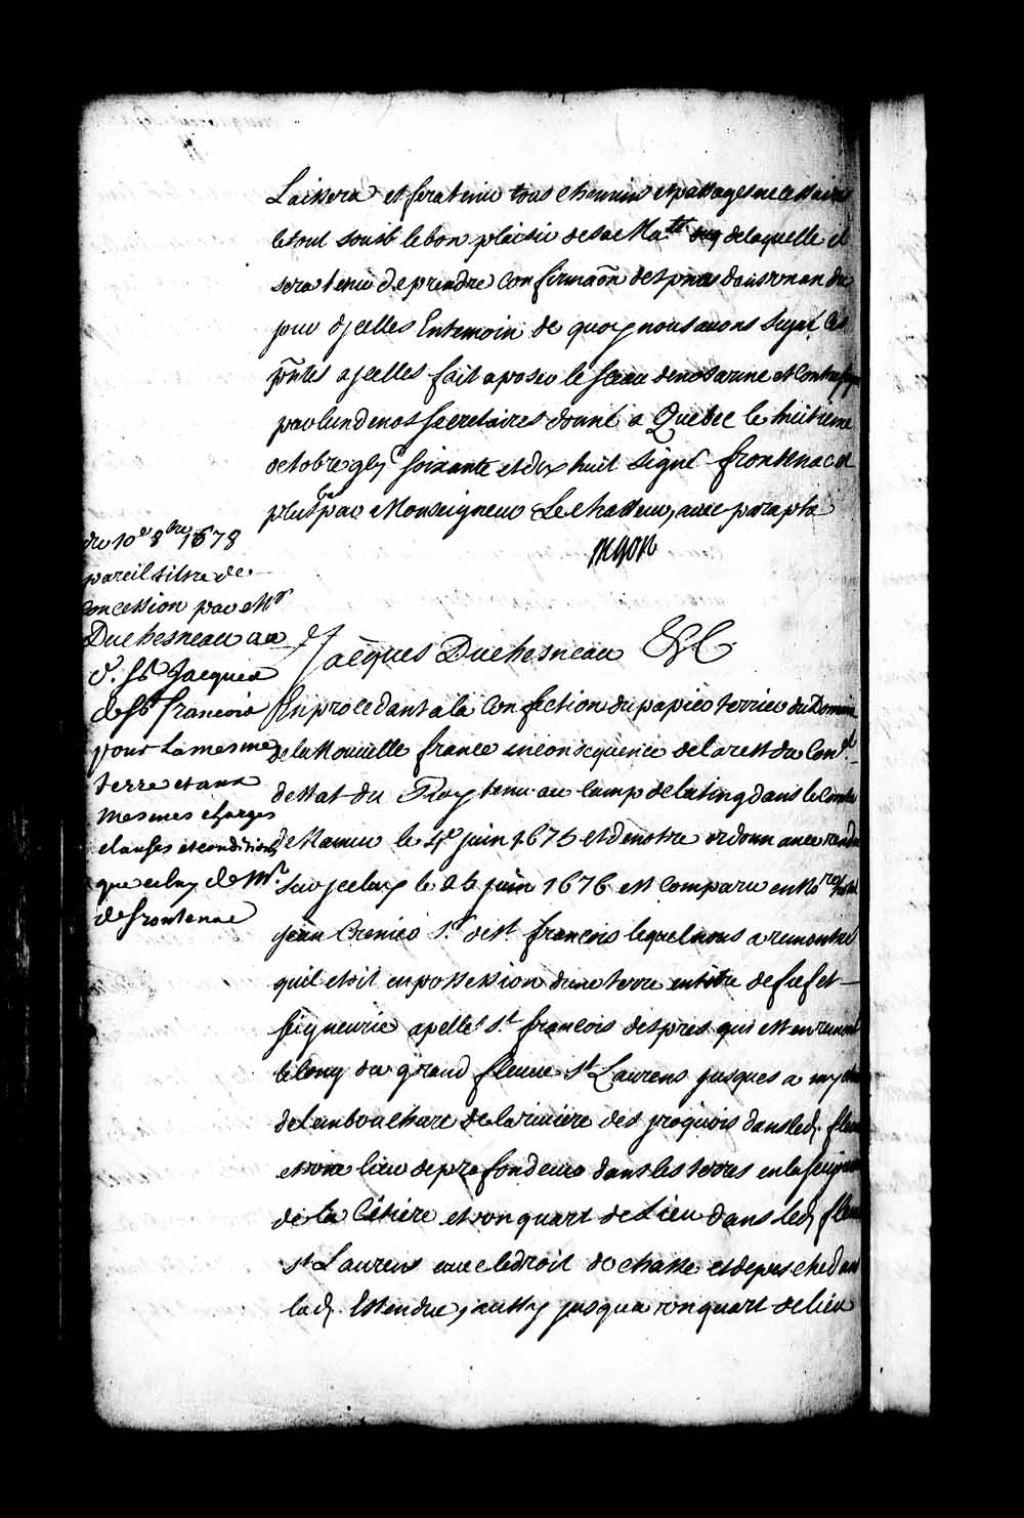 Laissera et sera tenu tous chemins et passages necessaires
le tout sous le bon plaisir de sa Mate de laquelle il
sera tenu de prendre confirmaon des pntes dans un an du
jour djcelles En temoin de quoy nous avons signé ces
pntes a jcelles fait aposer le sceau de nos armes et contresigner
par lun de nos secretaires donné a Quebec le huitieme
octobre gbjc soixante et dix huit Signé frontenac et
plus bas par Monseigneur Le Chasseur, avec paraphe
du 10e 8bre 1678
pareil titre de
concession par Mr
Duchesneau au
d. Sr Jacques
de St francois
pour la mesme
terre et aux
mesmes charges
clauses et conditions
que celuy de Mr
de frontenac
Jacques Duchesneau &c
En procedant a la Confection du papier terrier du Domaine
de la Nouvelle france en consequence de larest du Conel
destat du Roy tenu au camp de Lating dans le Comté
de Namur le 4e juin 1675 et de nostre ordonnance rendue
sur jceluy le 26 juin 1676 est comparu en Nore hotel
jean Crevier Sr de St francois lequel nous a remontré
quil etoit en possession dune terre en titre de fief et
seigneurie apellée St francois des pres qui est en
le long du grand fleuve St Laurens jusques a my
de lambouchure de la riviere des jroquois dans led. fleuve
et une lieu de profondeur dans les terres en la seigneurie
de la et un quart de Lieu dans led fleuve
St Laurens avec le droit de chasse et de pesche dans
lad. Estendue, aussy jusqua un quart de lieu